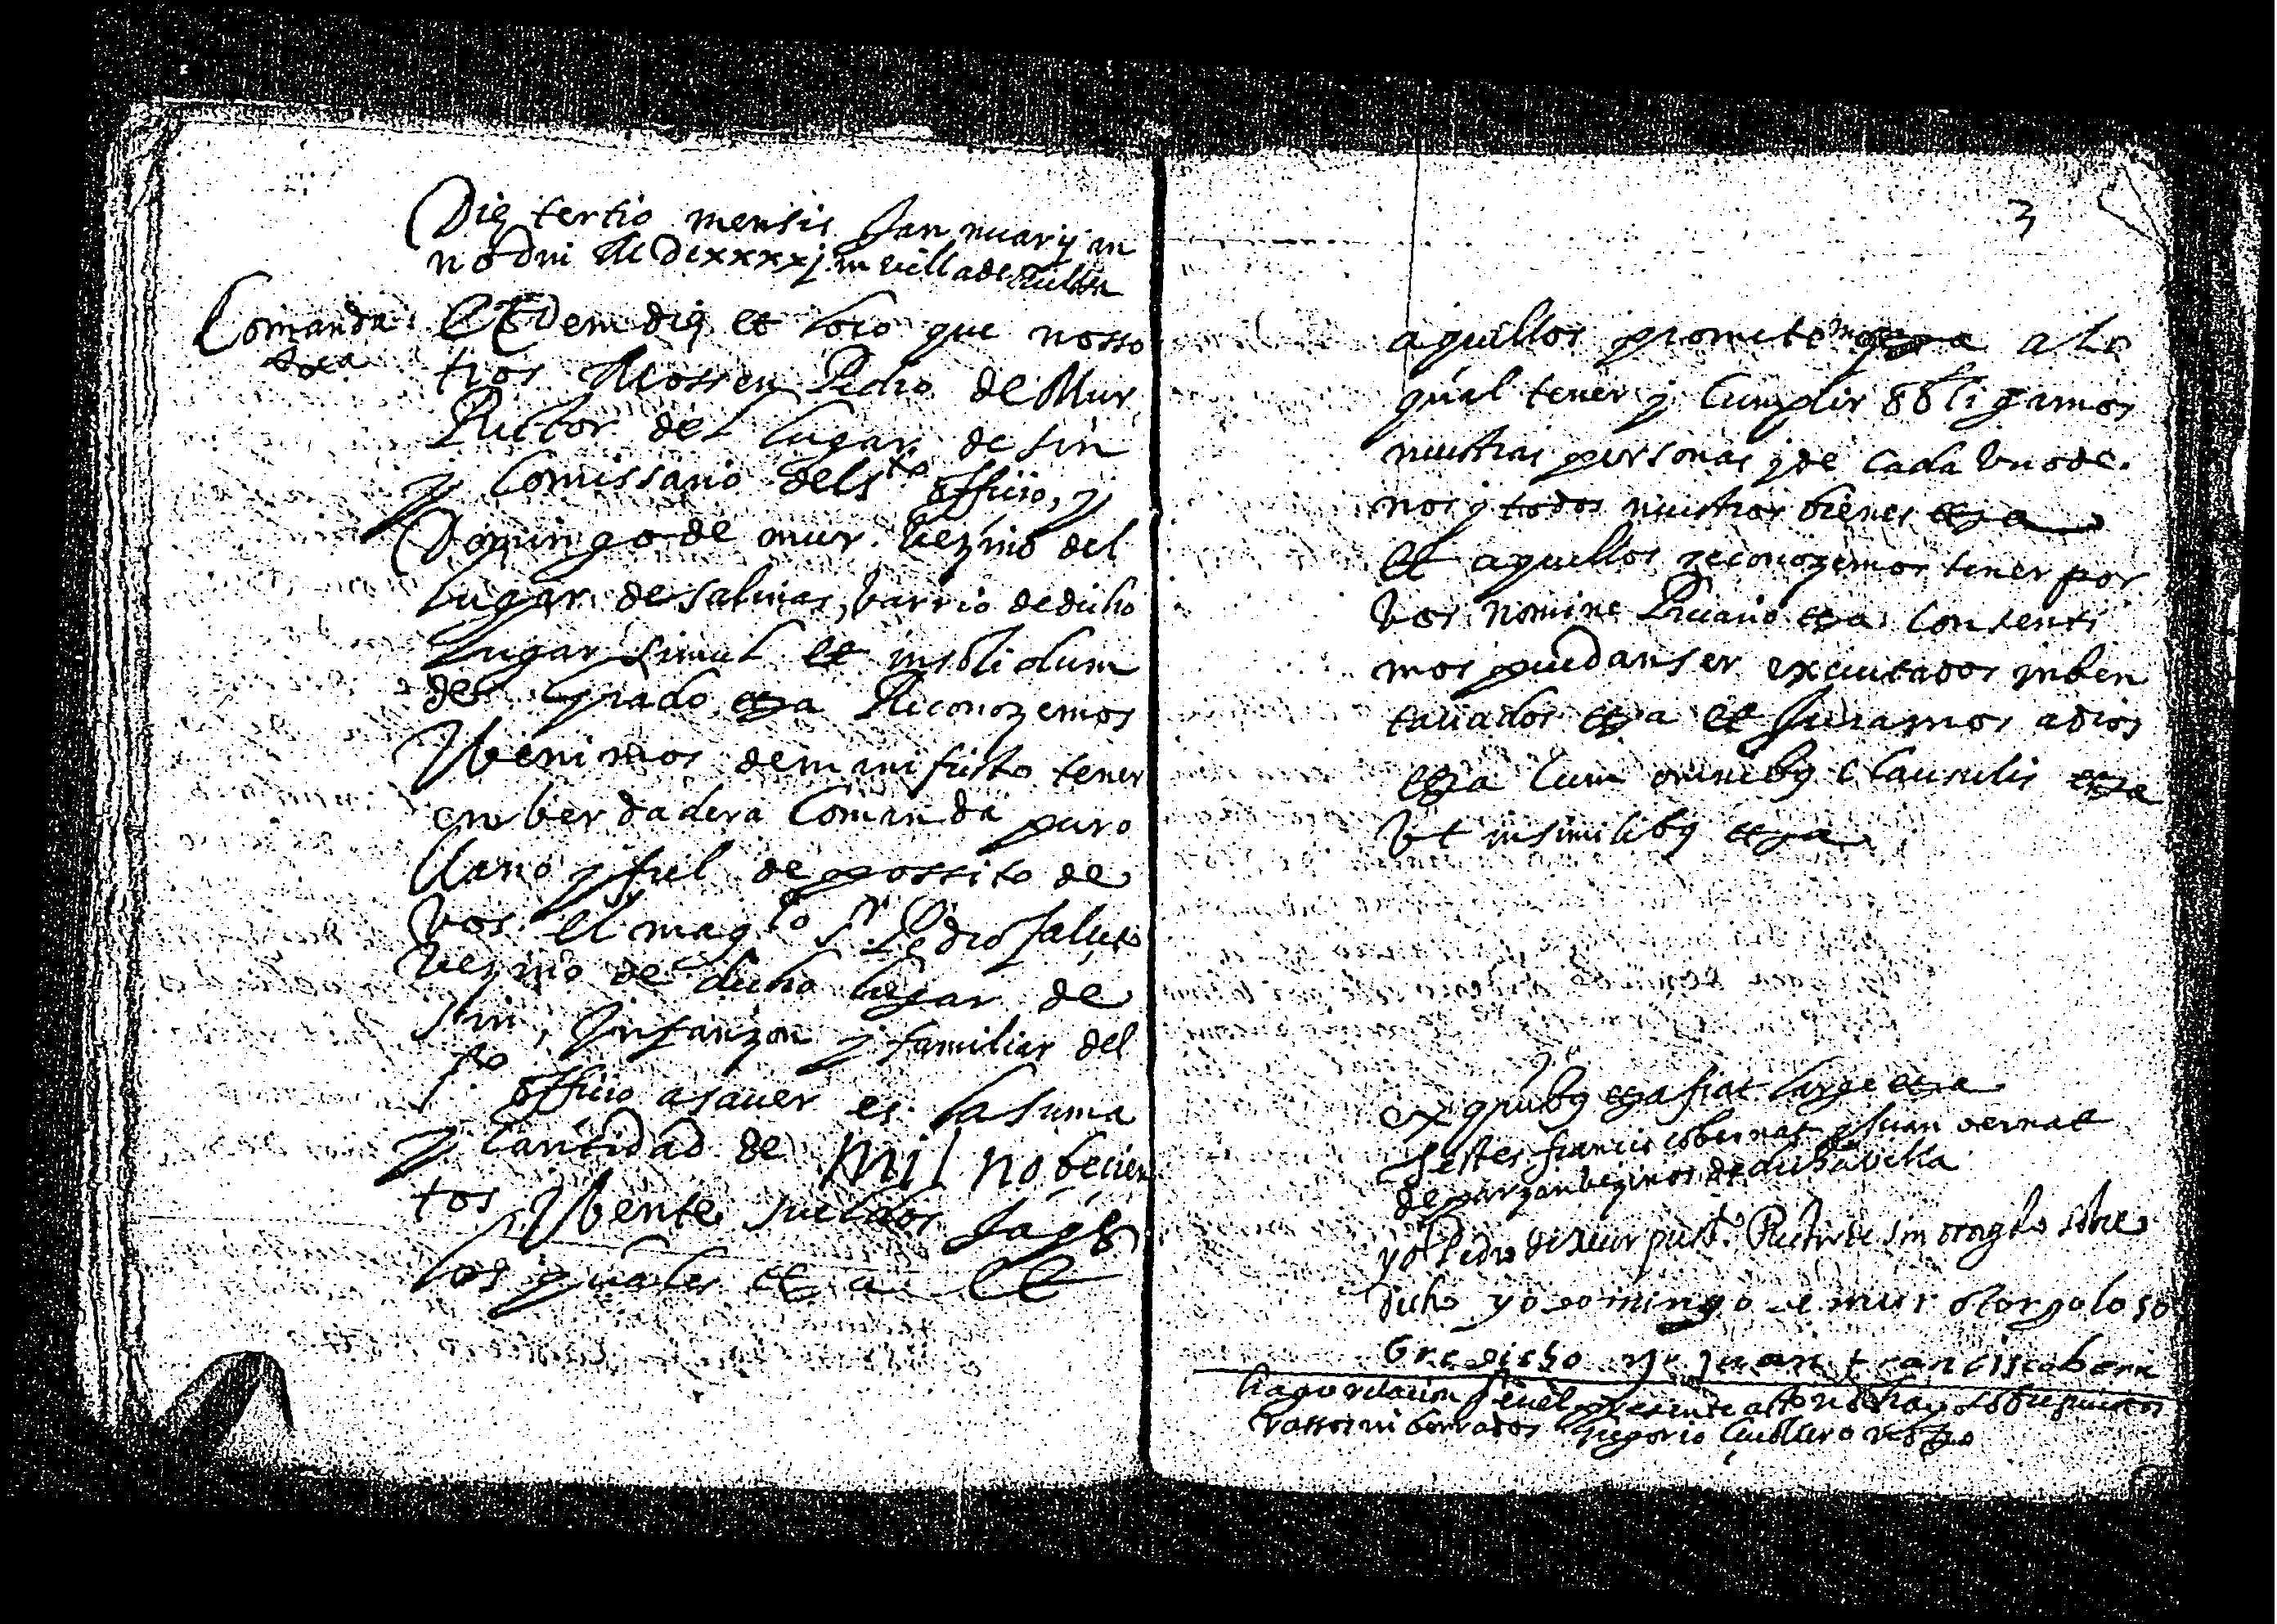 Die tertio mensis Januarij an
no dni MDCxxxxj in villa de Bielssa
Comanda
Eedem die et loco que nosso
tros Mossen Pedro de Mur
Rector del lugar de Sin
y Comissario del sto officio, y
Domingo de mur. Vezino del
lugar de salinas, barrio de dicho
lugar simul et insolidum
de grado etca Reconozemos
Y venimos de manifiesto tener
en berdadera Comanda puro
llano y fiel depossito de
vos el magco Sr Pedro Saluto
Vezino de dicho lugar de
Sin, Infanzon y familiar del
sto officio a sauer es la suma
y Cantidad de Mil nobecien
tos Y vente sueldos Jaqs
los quales etca et
3
aquellos prometemos etca a lo
qual tener y Cumplir obligamos
nuestras personas y de cada vno de
nos y todos nuestros bienes etca
et aquellos reconozemos tener por
vos nomine Precario etca consenti
mos puedan ser executados inben
tariados etca et Juramos a dios
etca Cum omnibus clausulis etca
vt in similibus etca
ex quibus etca fiat large etca
Testes francisco bernat y Juan bernat
de parzan vezinos de dicha villa
yo Pedro de Mur pnt. Rector de Sin otorgo lo sobre
dicho yo domingo de mur otorgo lo so
bredicho yo juan francisco bern
hago relacion q en el presente acto no hay sobrepuestos
rassos ni borrados Gregorio Cubllero notro